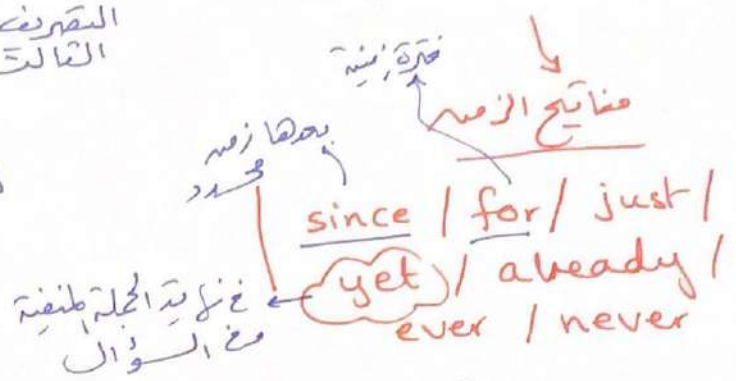 التصريف
الثالث
فترة زمنية
مفاتيح الزمن
بعدها زمن
محدد
since / for / just /
yet / already /
ever / never
في نهاية الجملة المنفية
وفي السؤال